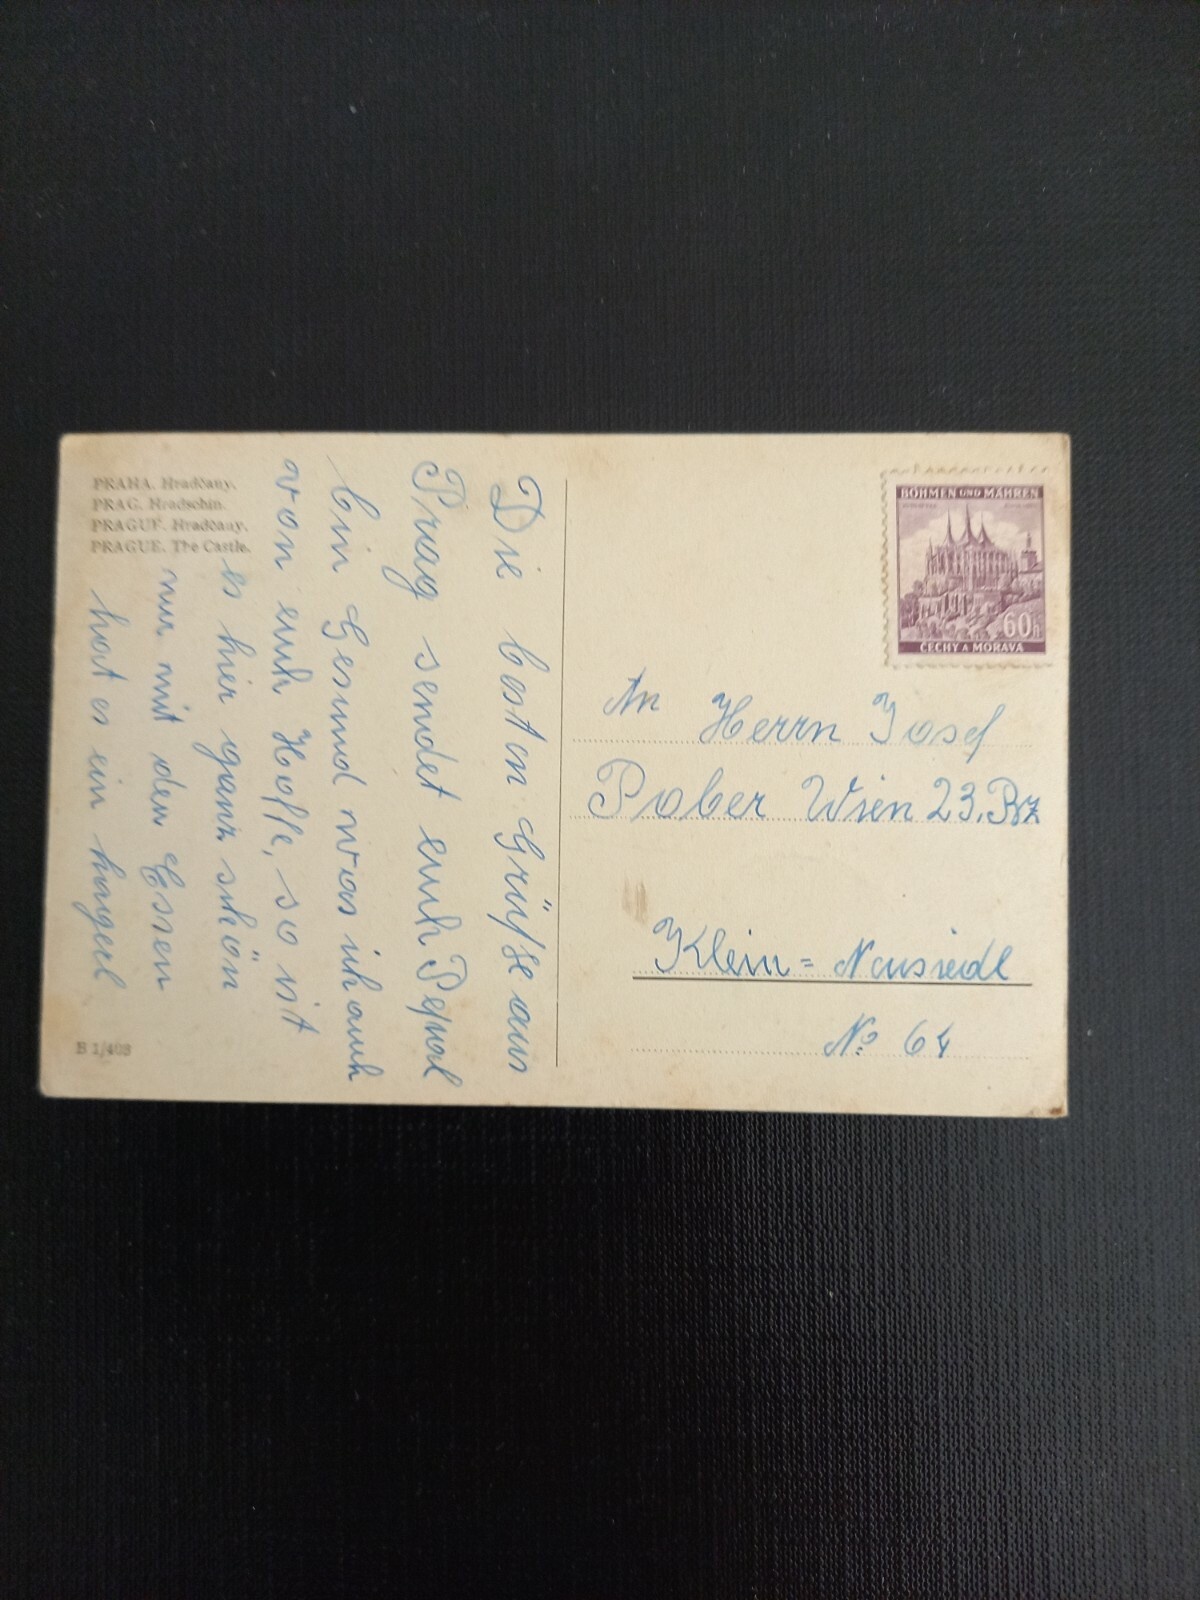 PRAHA. Hradčany.
PRAG. Hradschin.
PRAGUE. Hradčany.
PRAGUE. The Castle.
Die besten Grüße aus
Prag sendet euch Pepscal
bin Gesund was ich auch
von euch Hoffe, so ist
es hier ganz schön
nur mit den Essen
hat es ein hagerl
B 1/403
BÖHMEN UND MÄHREN
60h
ČECHY A MORAVA
An Herrn Josef
Pober Wien 23. Bz
Klein = Neusiedl
No 64